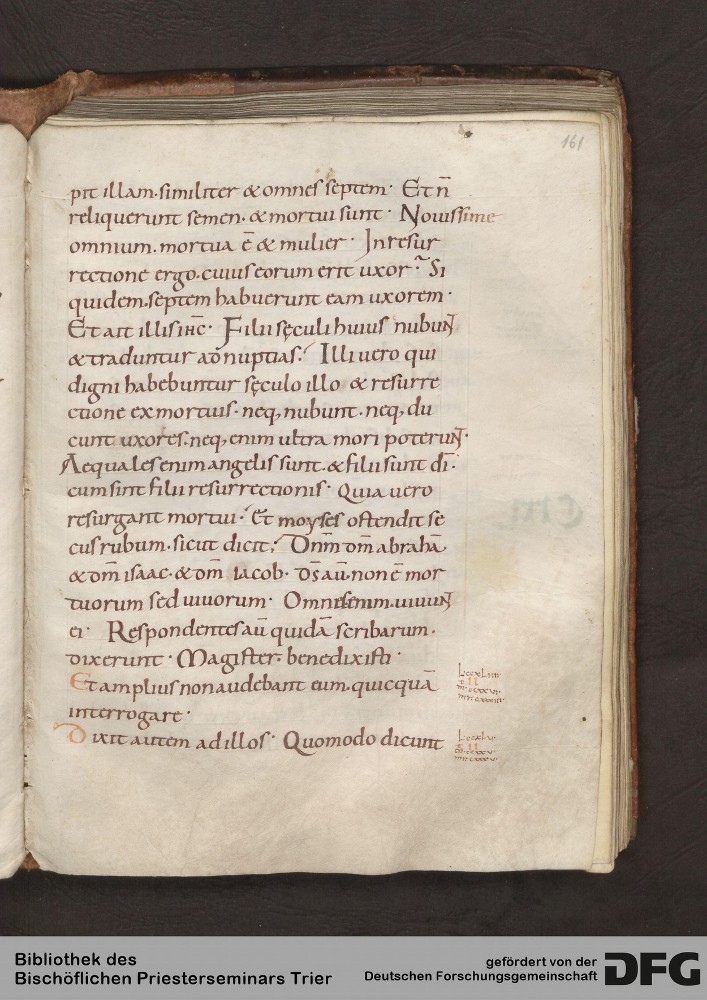 161
pit illam. similiter & omnes septem. Et n̄
reliquerunt semen. & mortui sunt. Nouissime
omnium. mortua ē & mulier. In resur
rectione ergo. cuius eorum erit uxor? Si
quidem. septem habuerunt eam uxorem.
Et ait illis ihc. Filii sęculi huius nubunt
& traduntur ad nuptias. Illi uero qui
digni habebuntur sęculo illo & resurre
ctione ex mortuis. neq, nubunt. neq, du
cunt uxores. neq, enim ultra mori poterunt.
Aequales enim angelis sunt. & filii sunt dī.
cum sint filii resurrectionis. Quia uero
resurgant mortui. Et moyses ostendit se
cus rubum. sicut dicit. Dnm dm̄ abrahā
& dm̄ isaac. & dm̄ iacob. Ds̄ aū. non ē mor
tuorum sed uiuorum. Omnes enim. uiuunt
ei. Respondentes aū quidā scribarum.
dixerunt. Magister. benedixisti.
Et amplius non audebant eum. quicquā
interrogare.
Dixit autem ad illos. Quomodo dicunt
Bibliothek des
Bischöflichen Priesterseminars Trier
gefördert von der
Deutschen Forschungsgemeinschaft
DFG